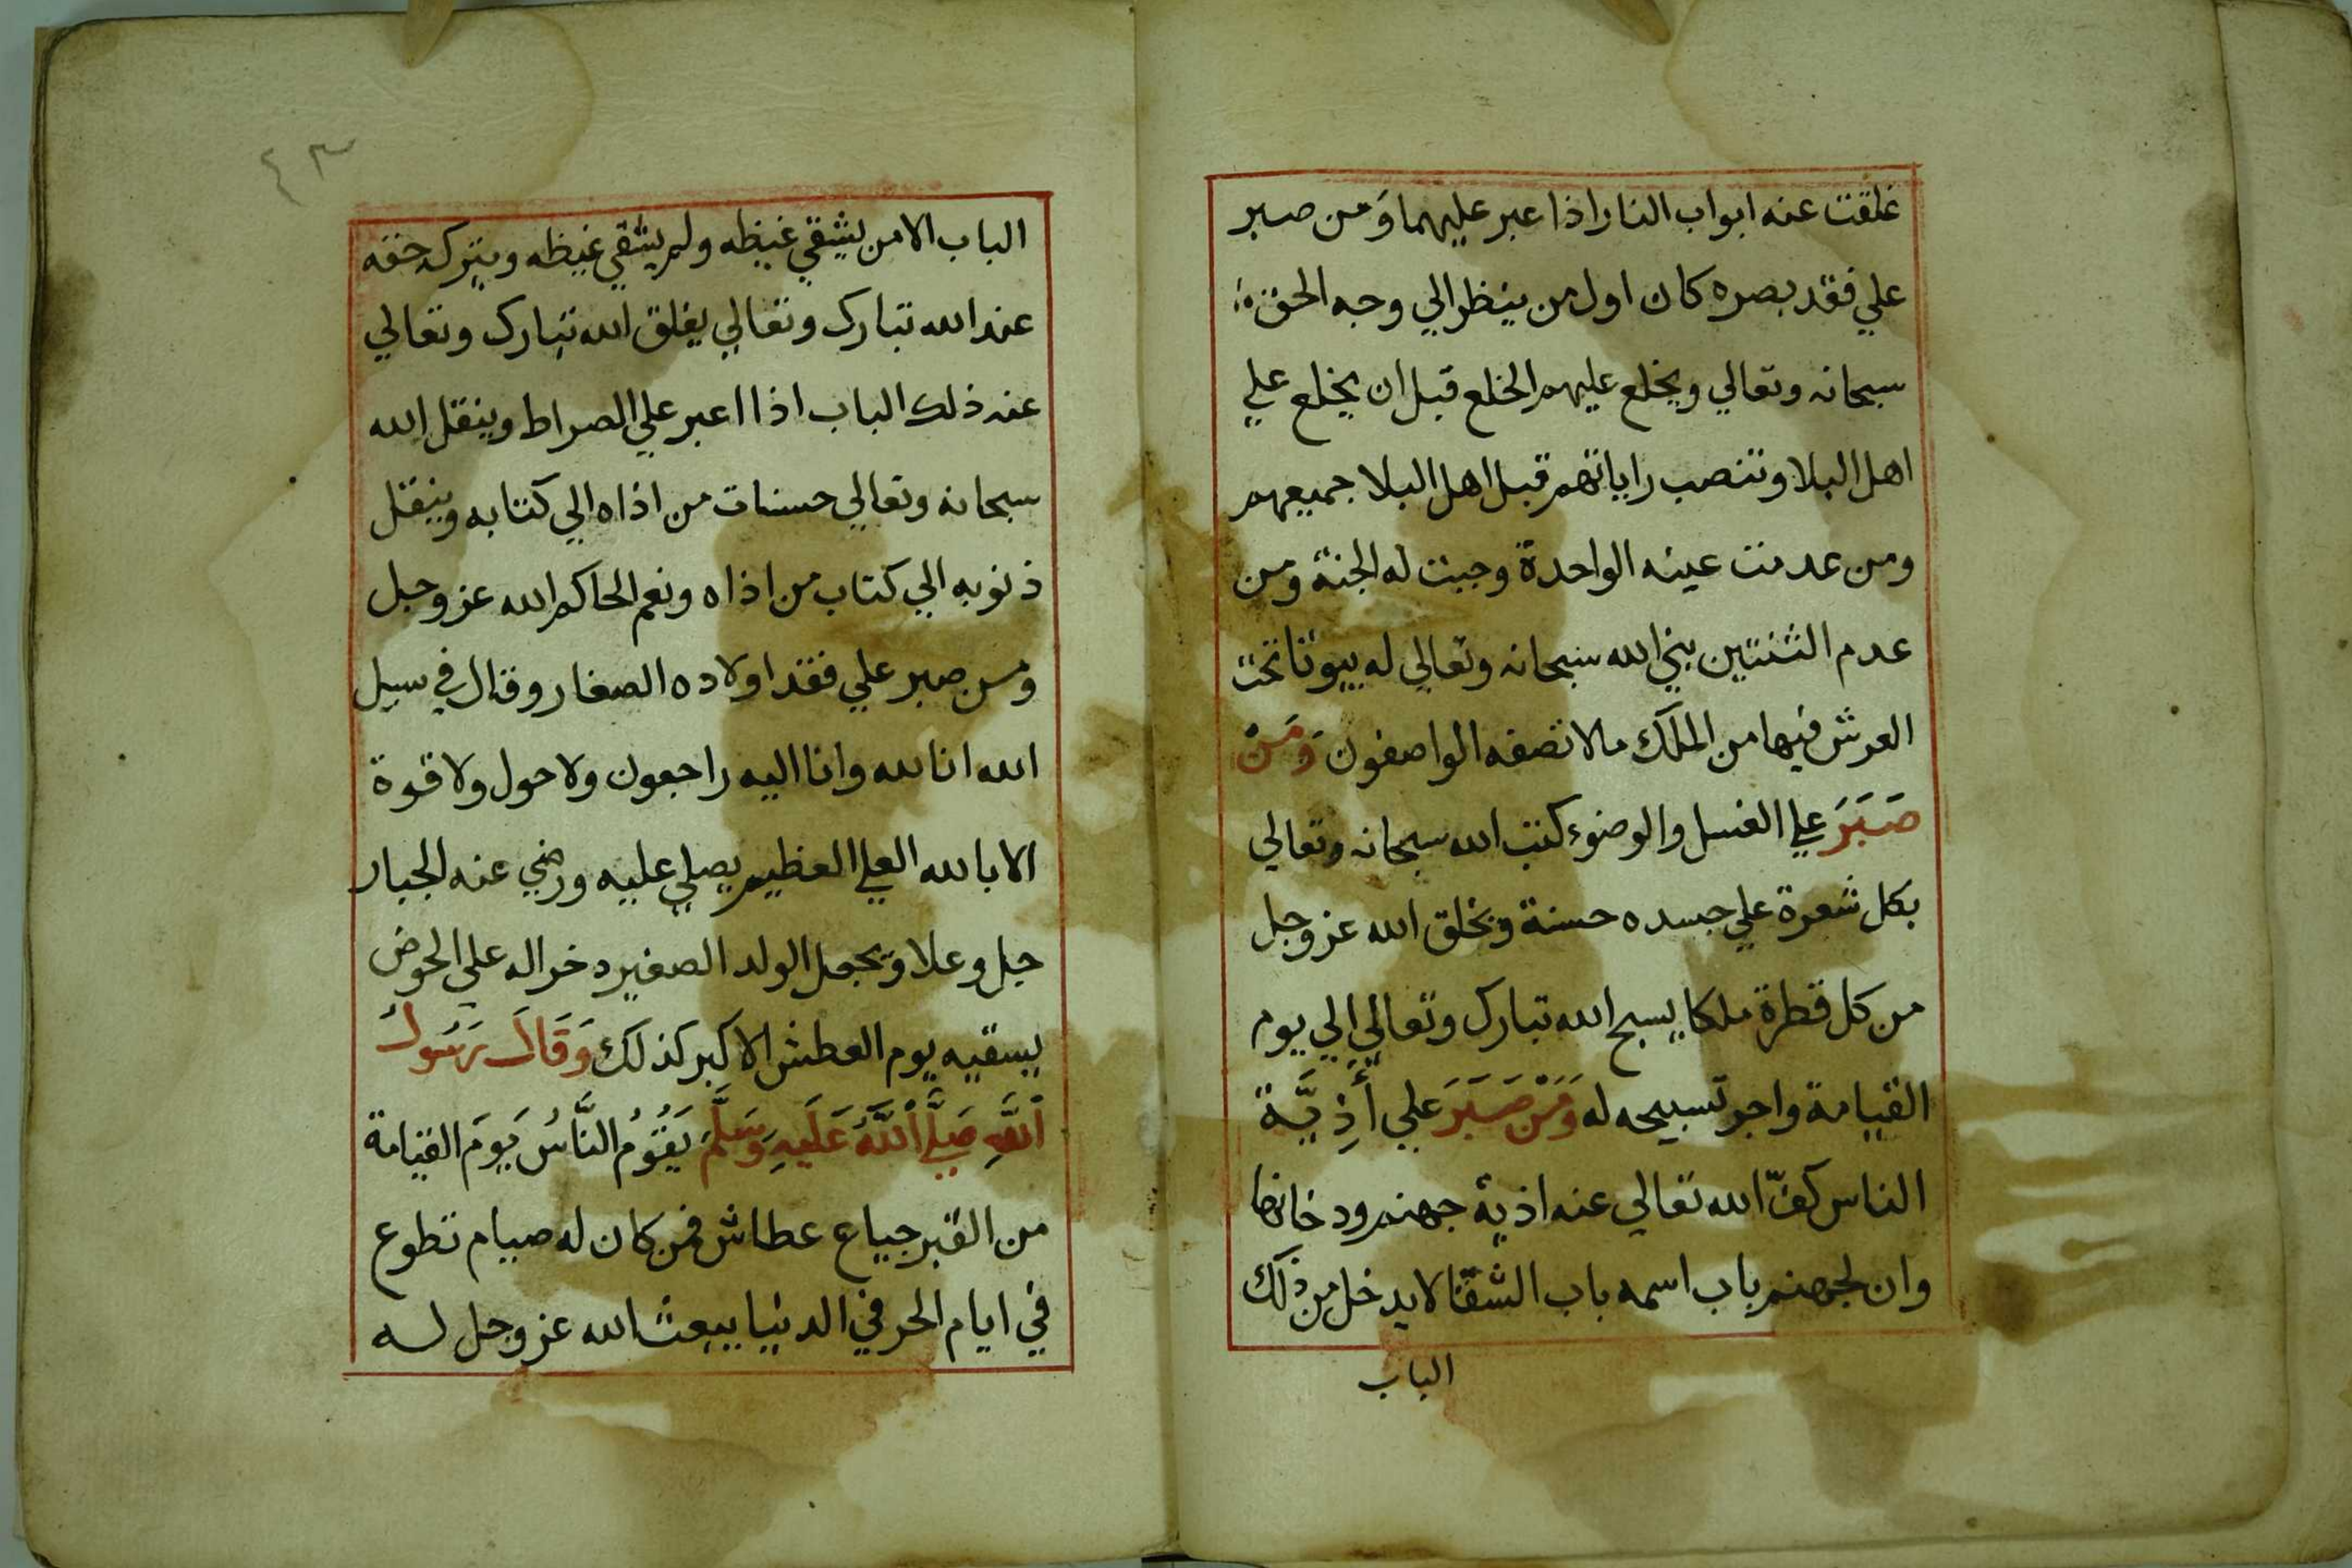 غلقت عنه ابواب النار اذا عبر عليهما وَمن صبر
علي فقد بصره كان اول من ينظر الي وجه الحق
سبحانه وتعالي ويخلع عليهم الخلع قبل ان يخلع علي
اهل البلا وتنصب راياتهم قبل اهل البلا جميعهم
ومن عدمت عينه الواحدة وجبت له الجنة ومن
عدم الثنتين بني الله سبحانه وتعالي له بيوتا تحت
العرش فيها من الملك مالا تصفه الواصفون وَمَنْ
صَبَرَ علي الغسل والوضوء كتب الله سبحانه وتعالي
بكل شعرة علي جسده حسنة ويخلق الله عز وجل
من كل قطرة ملكا يسبح الله تبارك وتعالي الي يوم
القيامة واجر تسبيحه له وَمَنْ صَبَرَ علي أَذِيَّة
الناس كفّ الله تعالي عنه اذية جهنم ودخانها
وان لجهنم باب اسمه باب الشقا لا يدخل من ذلك
الباب
٤٣
الباب الا من يشقي غيظه ولم يشقي غيظه ويترك حقه
عند الله تبارك وتعالي يغلق الله تبارك وتعالي
عنه ذلك الباب اذا اعبر علي الصراط وينقل الله
سبحانه وتعالي حسنات من اذاه الي كتابه وينقل
ذنوبه الي كتاب من اذاه ونعم الحاكم الله عز وجل
ومن صبر علي فقد اولاده الصغار وقال في سبيل
الله انا لله وانا اليه راجعون ولا حول ولا قوة
الا بالله العلي العظيم يصلي عليه ورضي عنه الجبار
جل وعلا ويجعل الولد الصغير دخرا له علي الحوض
يسقيه يوم العطش الاكبر كذلك وَقَالَ رَسُولُ
اللَّهِ صَلَّي اللَّهُ عَلَيهِ وَسَلَّمَ يَقُوُمُ النَّاسُ يَومَ القيامة
من القبر جياع عطاش فمن كان له صيام تطوع
في ايام الحر في الدنيا يبعث الله عز وجل له